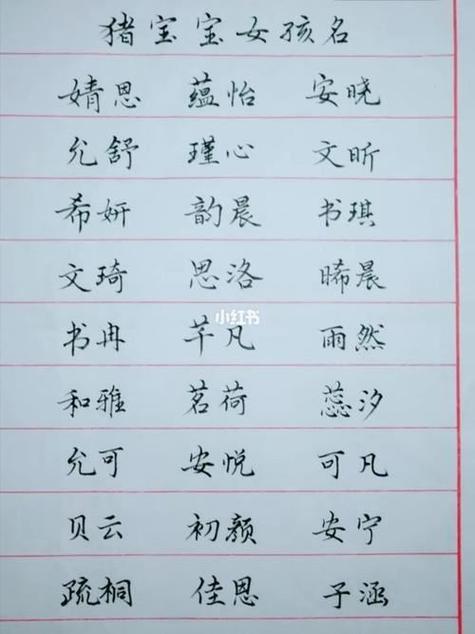 猪宝宝女孩名
婧思 蕴怡 安晓
允舒 瑾心 文昕
希妍 韵晨 书琪
文琦 思洛 晞晨
小红书
书冉 芊凡 雨然
和雅 茗荷 蕊汐
允可 安悦 可凡
贝云 初颜 安宁
疏桐 佳恩 子涵